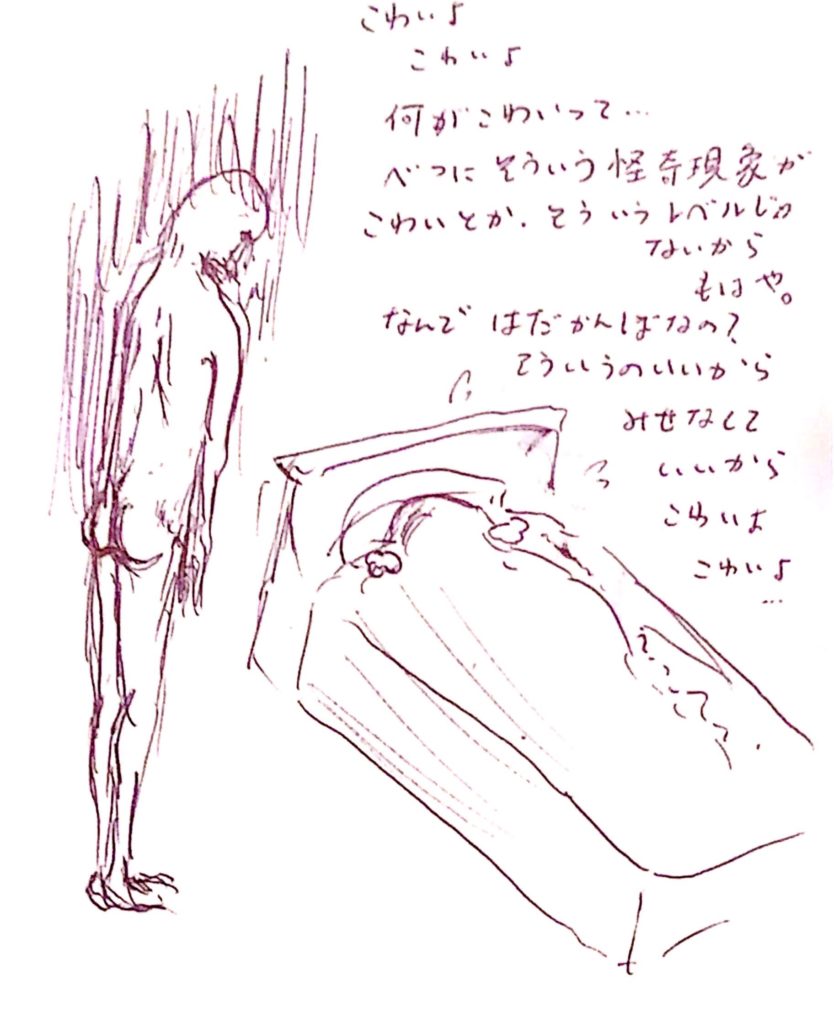 こわいよ
こわいよ
何がこわいって…
べつにそういう怪奇現象が
こわいとか、そういうレベルじゃ
ないから
もはや。
なんではだかんぼなの？
そういうのいいから
みせなくて
いいから
こわいよ
こわいよ
…